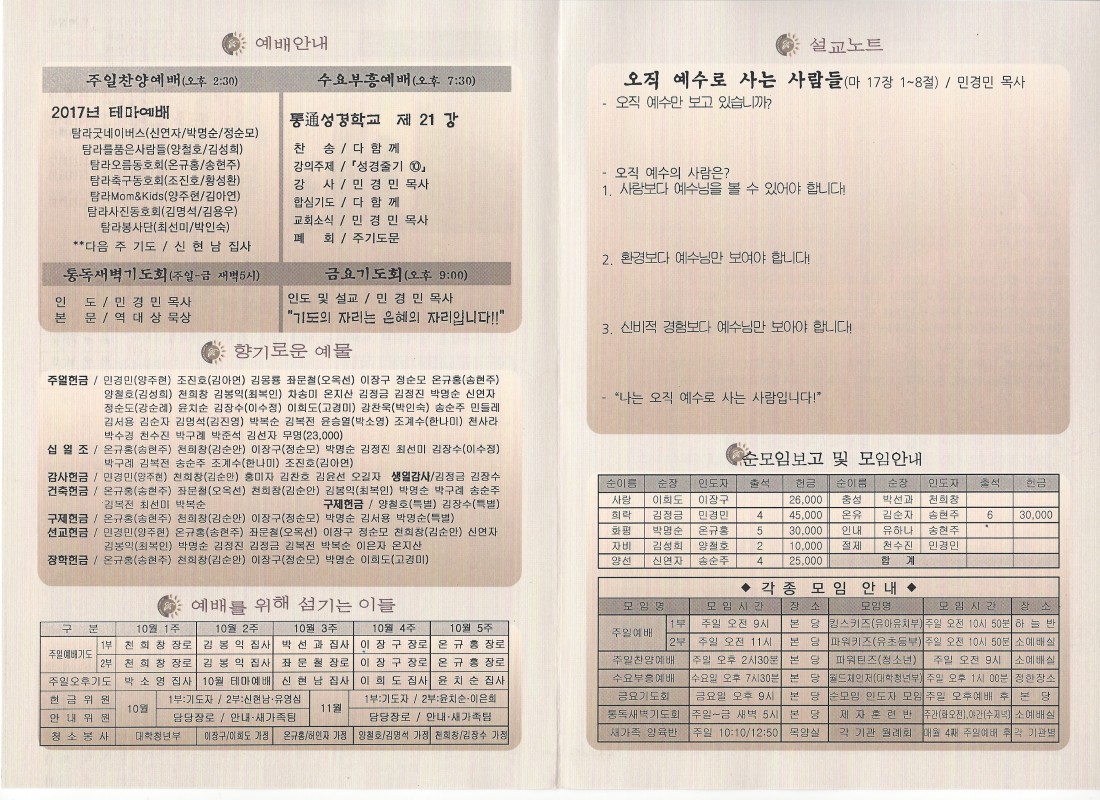 예배안내
주일찬양예배(오후 2:30)
2017년 테마예배
탐라굿네이버스(신연자/박명순/정순모)
탐라를품은사람들(양철호/김성희)
탐라오름동호회(온규홍/송현주)
탐라축구동호회(조진호/황성환)
탐라Mom&Kids(양주현/김아연)
탐라사진동호회(김명석/김용우)
탐라봉사단(최선미/박인숙)
**다음 주 기도 / 신 현 남 집사
수요부흥예배(오후 7:30)
통通성경학교 제 21 강
찬 송 / 다 함 께
강의주제 /「성경줄기 ⑩」
강 사 / 민 경 민 목사
합심기도 / 다 함 께
교회소식 / 민 경 민 목사
폐 회 / 주기도문
통독새벽기도회(주일-금 새벽5시)
인 도 / 민 경 민 목사
본 문 / 역 대 상 묵상
금요기도회(오후 9:00)
인도 및 설교 / 민 경 민 목사
"기도의 자리는 은혜의 자리입니다!!"
향기로운 예물
주일헌금 / 민경민(양주현) 조진호(김아연) 김몽룡 좌문철(오옥선) 이장구 정순모 온규홍(송현주)
양철호(김성희) 천희창 김봉익(최복인) 차송미 온지산 김정금 김정진 박명순 신연자
정순도(강순례) 윤치순 김장수(이수정) 이희도(고경미) 강찬욱(박인숙) 송순주 민들레
김서용 김순자 김명석(김진영) 박복순 김복전 윤승열(박소영) 조계수(한나미) 천사라
박수경 천수진 박구례 박준석 김선자 무명(23,000)
십 일 조 / 온규홍(송현주) 천희창(김순안) 이장구(정순모) 박명순 김정진 최선미 김장수(이수정)
박구례 김복전 송순주 조계수(한나미) 조진호(김아연)
감사헌금 / 민경민(양주현) 천희창(김순안) 홍미자 김찬호 김윤선 오길자 생일감사/김정금 김장수
건축헌금 / 온규홍(송현주) 좌문철(오옥선) 천희창(김순안) 김봉익(최복인) 박명순 박구례 송순주
김복전 최선미 박복순 구제헌금 / 양철호(특별) 김장수(특별)
구제헌금 / 온규홍(송현주) 천희창(김순안) 이장구(정순모) 박명순 김서용 박명순(특별)
선교헌금 / 민경민(양주현) 온규홍(송현주) 좌문철(오옥선) 이장구 정순모 천희창(김순안) 신연자
김봉익(최복인) 박명순 김정진 김정금 김복전 박복순 이은자 온지산
장학헌금 / 온규홍(송현주) 천희창(김순안) 이장구(정순모) 박명순 이희도(고경미)
예배를 위해 섬기는 이들
구 분 10월 1주 10월 2주 10월 3주 10월 4주 10월 5주
주일예배기도 1부 천 희 창 장로 김 봉 익 집사 박 선 과 집사 이 장 구 장로 온 규 홍 장로
2부 천 희 창 장로 김 봉 익 집사 좌 문 철 장로 이 장 구 장로 온 규 홍 장로
주일오후기도 박 소 영 집사 10월 테마예배 신 현 남 집사 이 희 도 집사 윤 치 순 집사
헌 금 위 원 10월 1부:기도자 / 2부:신현남·유영심 11월 1부:기도자 / 2부:윤치순·이은희
안 내 위 원 담당장로 / 안내·새가족팀 담당장로 / 안내·새가족팀
청 소 봉 사 대학청년부 이장구/이희도 가정 온규홍/허민자 가정 양철호/김명석 가정 천희창/김장수 가정
설교노트
오직 예수로 사는 사람들(마 17장 1~8절) / 민경민 목사
- 오직 예수만 보고 있습니까?
- 오직 예수의 사람은?
1. 사람보다 예수님을 볼 수 있어야 합니다!
2. 환경보다 예수님만 보여야 합니다!
3. 신비적 경험보다 예수님만 보아야 합니다!
- "나는 오직 예수로 사는 사람입니다!"
순모임보고 및 모임안내
순이름 순장 인도자 출석 헌금 순이름 순장 인도자 출석 헌금
사랑 이희도 이장구 26,000 충성 박선과 천희창
희락 김정금 민경민 4 45,000 온유 김순자 송현주 6 30,000
화평 박명순 온규홍 5 30,000 인내 유하나 송현주
자비 김성희 양철호 2 10,000 절제 천수진 민경민
양선 신연자 송순주 4 25,000 합 계
◆ 각 종 모 임 안 내 ◆
모 임 명 모 임 시 간 장 소 모임명 모 임 시 간 장 소
주일예배 1부 주일 오전 9시 본 당 킹스키즈(유아유치부) 주일 오전 10시 50분 하 늘 반
2부 주일 오전 11시 본 당 파워키즈(유초등부) 주일 오전 10시 50분 소예배실
주일찬양예배 주일 오후 2시30분 본 당 파워틴즈(청소년) 주일 오전 9시 소예배실
수요부흥예배 수요일 오후 7시30분 본 당 월드체인저(대학청년부) 주일 오후 1시 00분 정한장소
금요기도회 금요일 오후 9시 본 당 순모임 인도자 모임 주일 오후예배 후 본 당
통독새벽기도회 주일~금 새벽 5시 본 당 제 자 훈 련 반 주간(화오전),야간(수저녁) 소예배실
새가족 양육반 주일 10:10/12:50 목양실 각 기관 월례회 매월 4째 주일예배 후 각 기관별